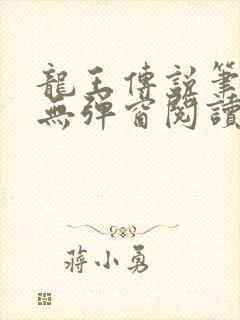 龍王傳說筆
無彈窗閱讀
蔣小勇